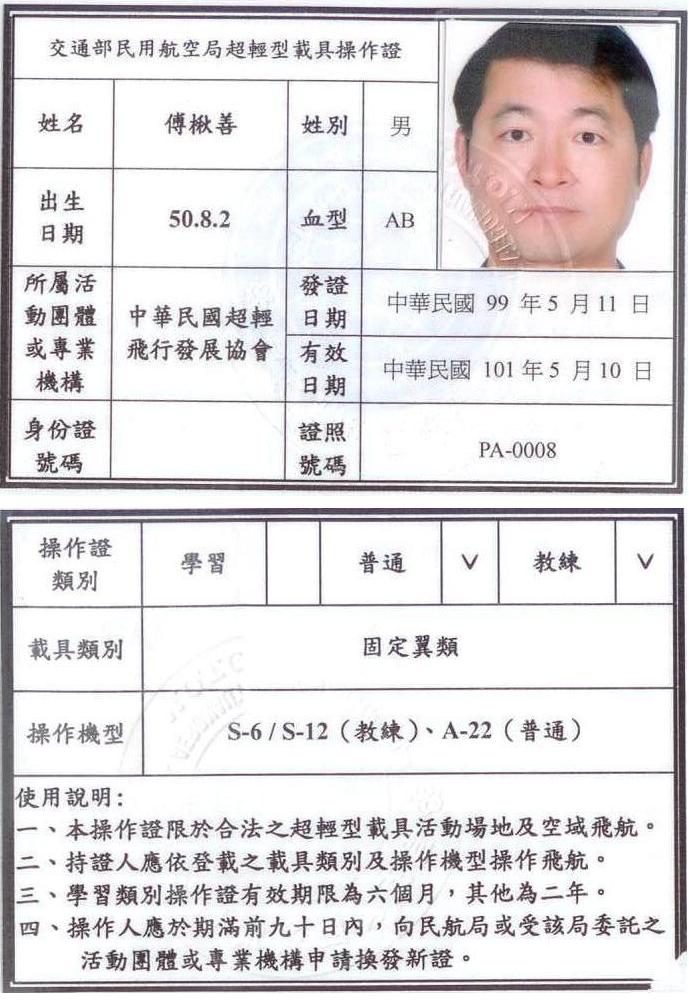 交通部民用航空局超輕型載具操作證
姓名 傅楸善 姓別 男
出生日期 50.8.2 血型 AB
所屬活動團體或專業機構 中華民國超輕飛行發展協會 發證日期 中華民國 99 年 5 月 11 日
有效日期 中華民國 101 年 5 月 10 日
身份證號碼 證照號碼 PA-0008
操作證類別 學習 普通 V 教練 V
載具類別 固定翼類
操作機型 S-6 / S-12（教練）、A-22（普通）
使用說明：
一、本操作證限於合法之超輕型載具活動場地及空域飛航。
二、持證人應依登載之載具類別及操作機型操作飛航。
三、學習類別操作證有效期限為六個月，其他為二年。
四、操作人應於期滿前九十日內，向民航局或受該局委託之
活動團體或專業機構申請換發新證。